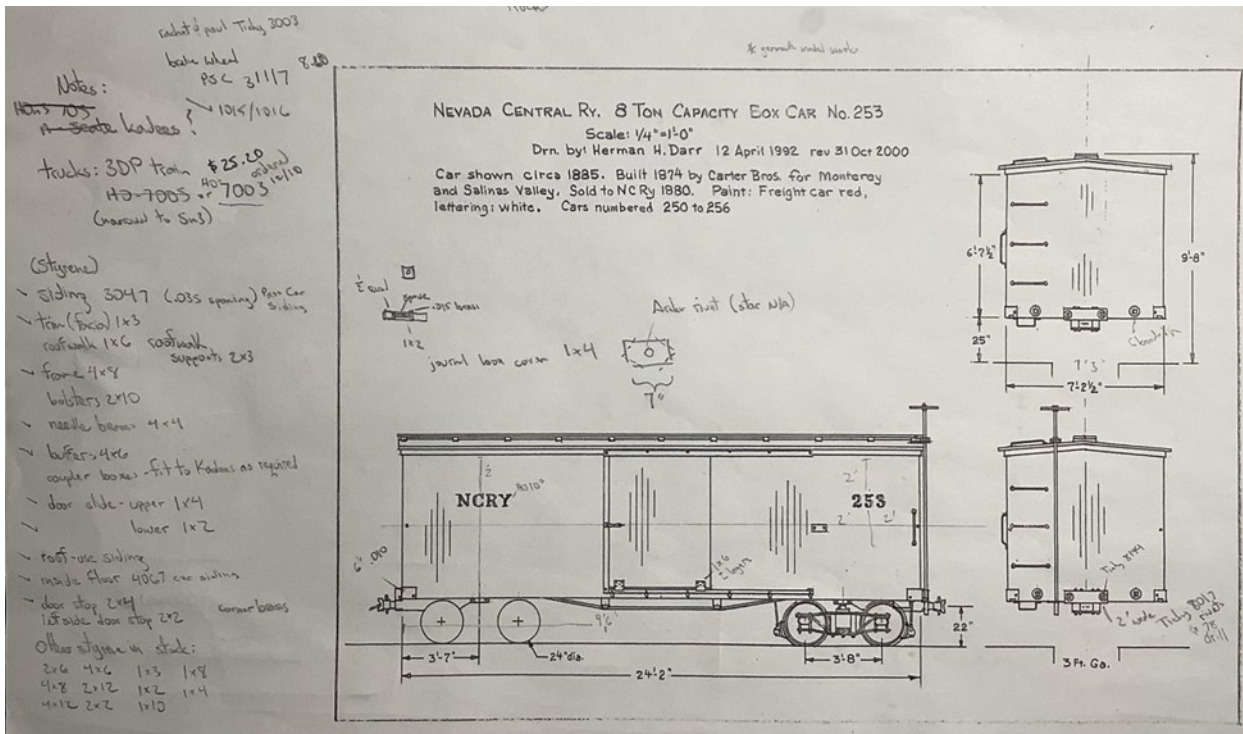 ratchet & pawl Tichy 3003
brake wheel
PSC 31117
8.00
Notes:
HOn3 705
Kadees
1015/1016
trucks: 3DP train $25.20
ordered
12/10
HO-7005 or 7003
(narrowed to Sn3)
(styrene)
siding 3047 (.035 spacing) Pass Car
Siding
trim (facia) 1x3
roofwalk 1x6 roofwalk
supports 2x3
frame 4x8
bolsters 2x10
needle beams 4x4
buffers 4x6
coupler boxes - fit to Kadees as required
door slide - upper 1x4
lower 1x2
roof - use siding
inside floor 4067 car siding
door stop 2x4
left side door stop 2x2
corner braces
Other styrene in stock:
2x6 4x6 1x3 1x8
4x8 2x12 1x2 1x4
4x12 2x2 1x10
NEVADA CENTRAL RY. 8 TON CAPACITY BOX CAR No. 253
Scale: 1/4"=1'-0"
Drn. by: Herman H. Darr 12 April 1992 rev 31 Oct 2000
Car shown circa 1885. Built 1874 by Carter Bros. for Monterey
and Salinas Valley. Sold to NC Ry 1880. Paint: Freight car red,
lettering: white. Cars numbered 250 to 256
1x2
journal box cover 1x4
rivet (star N/A)
7"
6'-7½"
9'-8"
25"
7'3"
7'-2½"
NCRY
253
2'
2'
2'
2'
6" .010
1x6
2 layers
9'6"
22"
3'-7"
24" dia.
3'-8"
24'-2"
3 Ft. Ga.
2" wide
Tichy 8017
rivets
drill